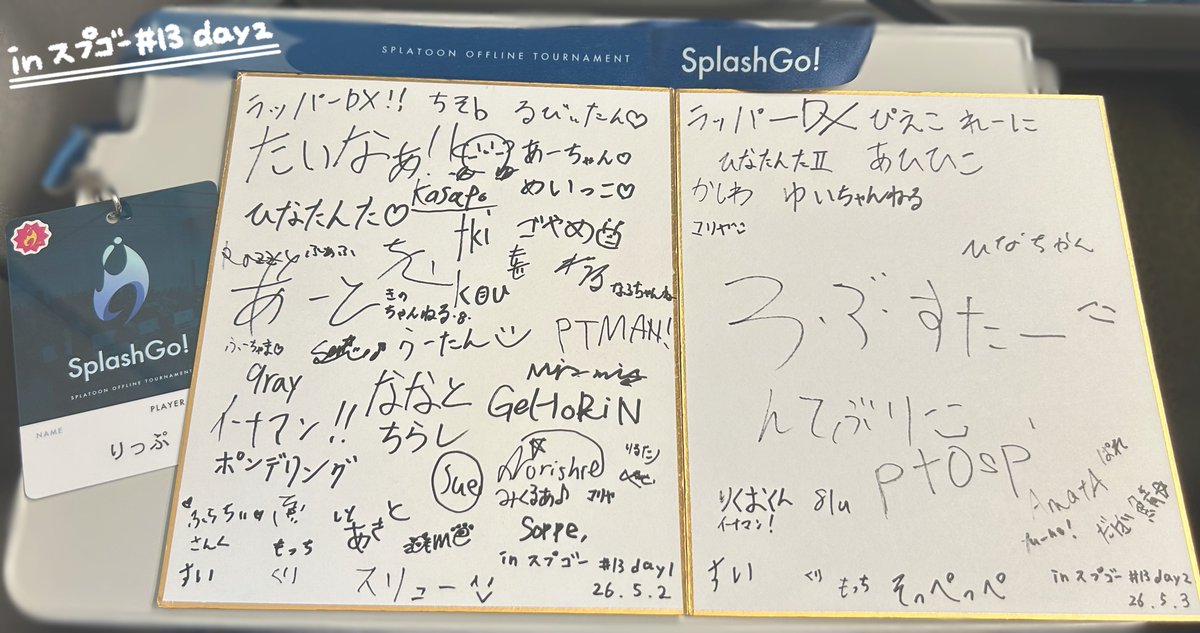 in スプゴー #13 day2
SPLATOON OFFLINE TOURNAMENT
SplashGo!
SplashGo!
SPLATOON OFFLINE TOURNAMENT
PLAYER
NAME
りっぷ
ラッパーDX!! ちそb るびぃたん♡
たいなぁ! あーちゃん♡
Kasapo めいっこ♡
ひなたんた♡
tki ごやめ
ふぁふ
なるちゃんねる
あーと きの
ちゃんねる・8・ KOU
うーたん PTMAN!
ふーちゃま♡
qray
ななと GeHoRiN
イナマン!! ちらし
ポンデリング Sue Norishie りるたん
みくるあ♪ コリヤ
ふらちぃ♥ と
さんく もっち あき Soppe,
すい くり スリュー
in スプゴー #13 day1
26.5.2
ラッパーDX ぴえこ れーに
ひなたんたII あひひこ
かしわ ゆいちゃんねる
コリヤン
ひなちゃん
ろ・ぶ・すたー
んてぶりこ
ptosp
りくおくん 8lu AmatA ぱれ
イナマン! だば 鯖
すい くり もっち そっぺっぺ
in スプゴー #13 day2
26.5.3